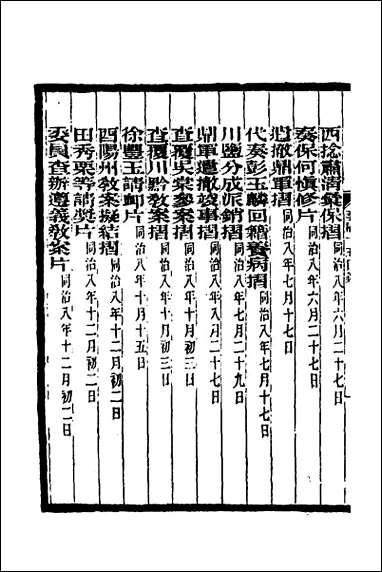 西捻肅清彙保摺同治八年六月二十七日
奏保何愼修片同治八年六月二十七日
遵撤鼎軍摺同治八年七月十七日
代奏彭玉麟回籍養病摺同治八年七月十七日
川鹽分成派銷摺同治八年七月二十九日
鼎軍遣撤竣事摺同治八年九月二十七日
查覆吳棠參案摺同治八年十月初三日
查覆川黔敎案摺同治八年十月初三日
徐豐玉請卹片同治八年十月十五日
酉陽州敎案擬結摺同治八年十二月初二日
田秀栗等請奬片同治八年十二月初二日
委員查辦遵義敎案片同治八年十二月初二日